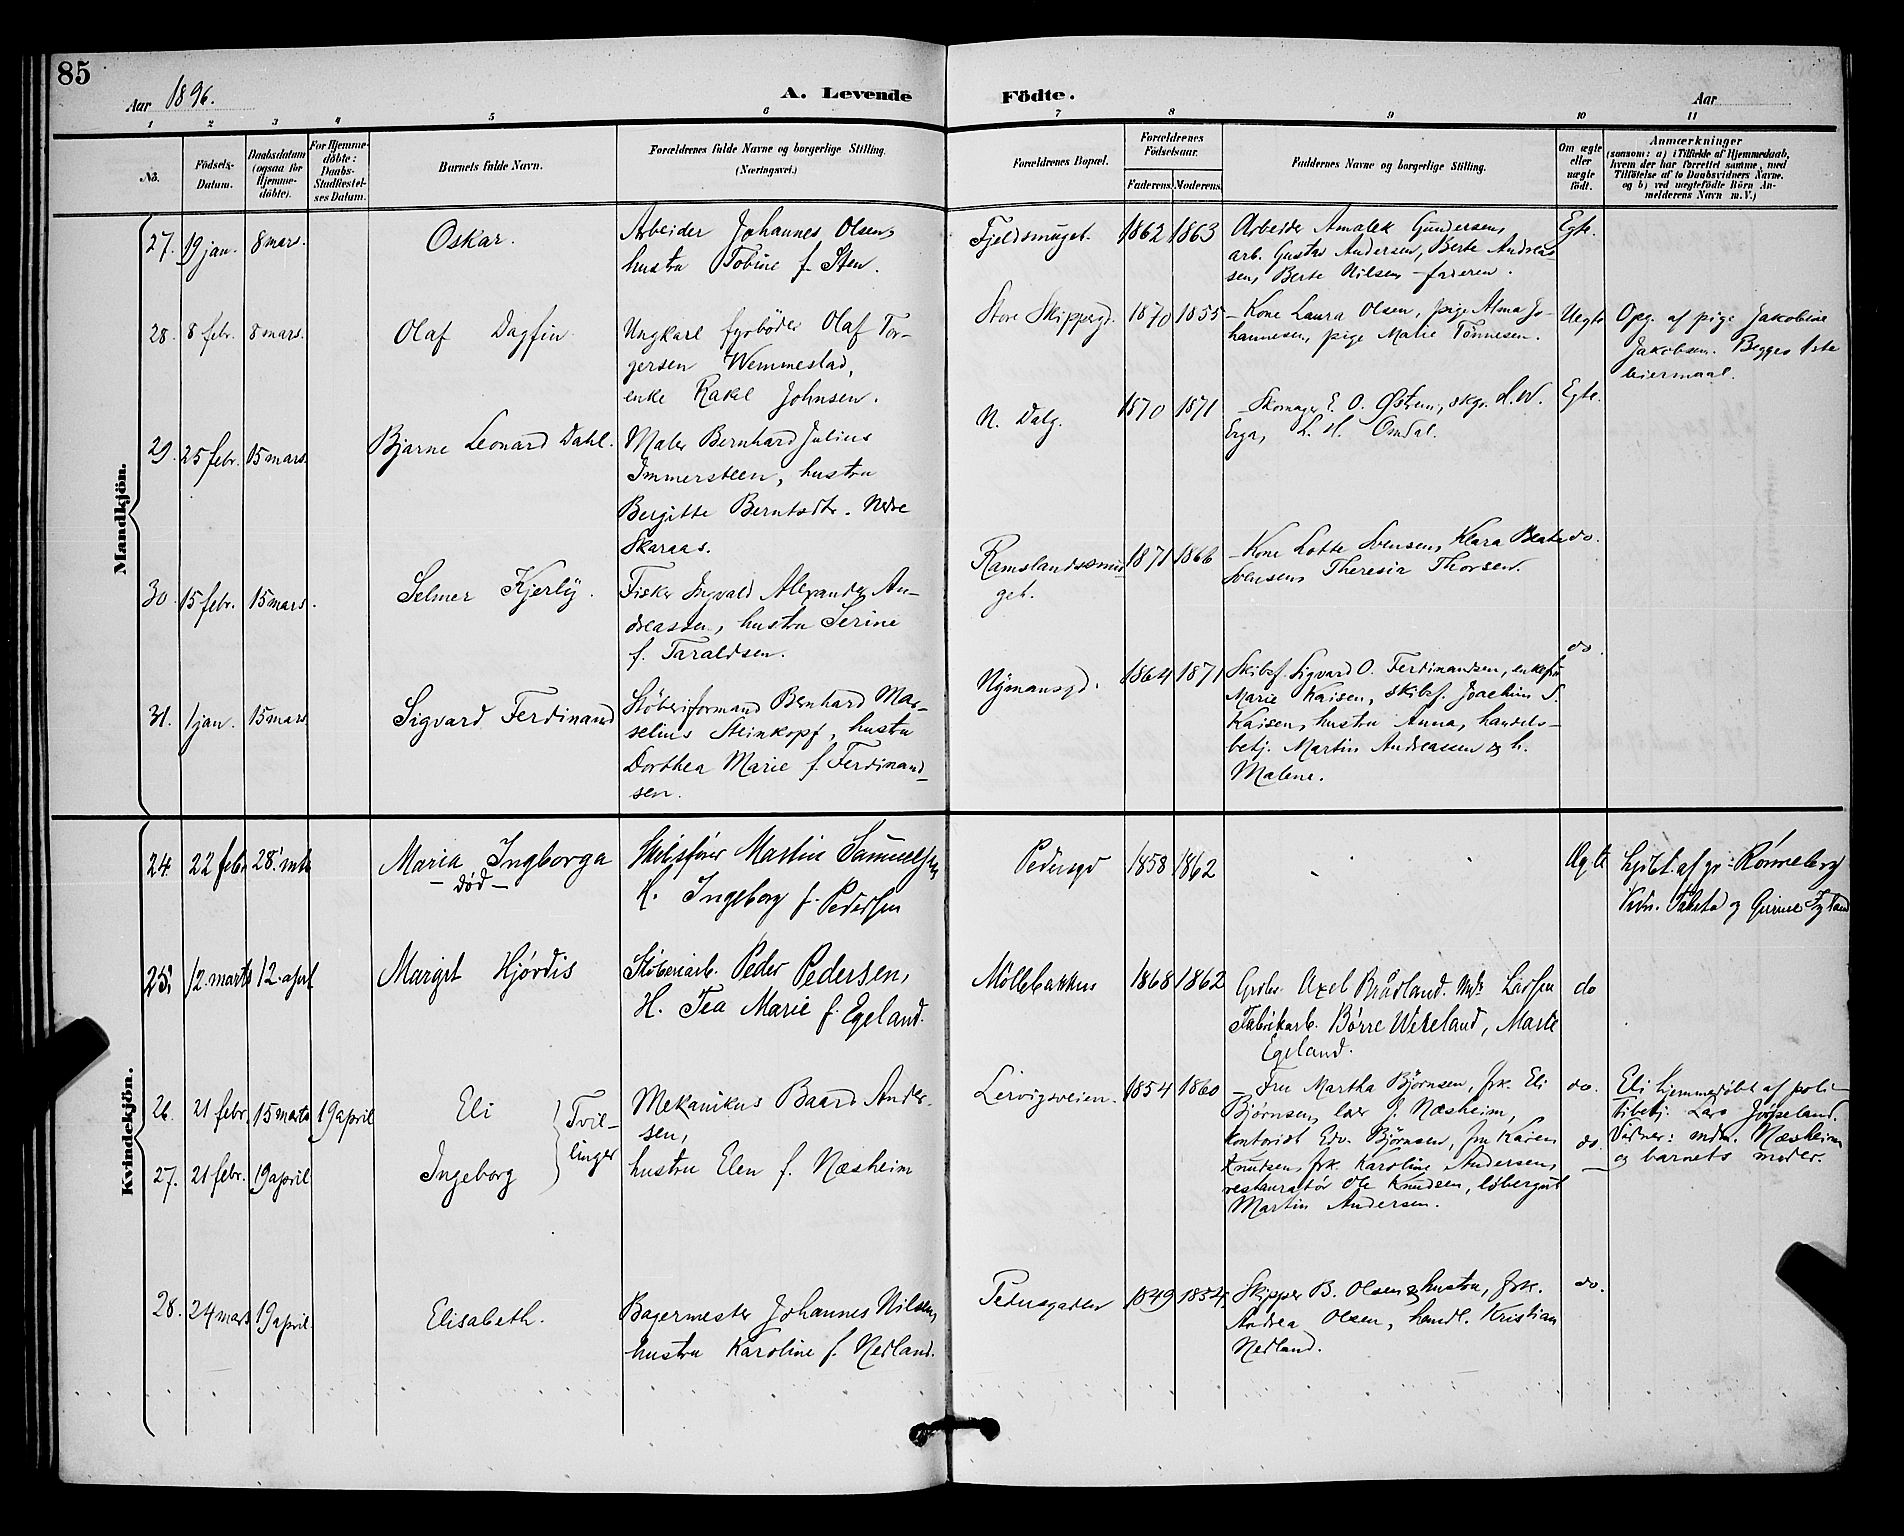 85
Aar 1896.
A. Levende Födte.
Aar
1 2 3 4 5 6 7 8 9 10 11
No.
Födsels-Datum.
Daabsdatum (ogsaa for Hjemme-döbte).
For Hjemme-döbte: Daabs-Stadfæstel-ses Datum.
Barnets fulde Navn.
Forældrenes fulde Navne og borgerlige Stilling.
(Næringsvei.)
Forældrenes Bopæl.
Forældrenes Födselsaar.
Faderens. Moderens.
Faddernes Navne og borgerlige Stilling.
Om ægte eller uægte födt.
Anmærkninger
(saasom: a) i Tilfælde af Hjemmedaab,
hvem der har forrettet samme, med
Tilföielse af to Daabsvidners Navne.
og b) ved uægtefödte Börn An-
melderens Navn m.V.)
Mandkjön.
27. 19 jan. 8 mars. Oskar.
Arbeider Johannes Olsen,
hustru Tobine f. Sten.
Fjeldsmuget. 1862 1863
Arbeider Amalek Gundersen,
arb. Gustav Andersen, Berte Andreas-
sen, Berte Nilsen – faderen.
Egte.
28. 8 febr. 8 mars. Olaf Dagfin
Ungkarl fyrböder Olaf Tor-
gersen Wemmestad,
enke Rakel Johnsen.
Store Skipperg. 1870 1855
– Kone Laura Olsen, pige Alma Jo-
hannesen, pige Malie Tönnesen.
Uegte
Opg. af pige Jakobine
Jakobsen. Begges 1ste
leiermaal.
29. 25 febr. 15 mars. Bjarne Leonard Dahl.
Maler Bernhard Julius
Immersteen, hustru
Bergitte Berntsdtr. Nedre
Skaraas.
N. Dalg. 1870 1871
– Skomager E. O. Østrem, skgr. H. W.
Erga, L. H. Omdal.
Egte.
30. 15 febr. 15 mars. Selmer Kjerly.
Fisker Ingvald Alexander An-
dreassen, hustru Serine
f. Taraldsen.
Ramslandssmu-
get. 1871 1866
– Kone Lotte Svensen, Klara Beate
Svensen, Theresia Thorsen.
do.
31. 1 jan. 15 mars Sigvard Ferdinand
Støberiformand Bernhard Mar-
selius Steinkopf, hustru
Dorthea Marie f. Ferdinand-
sen.
Nymansgd. 1864 1871
Skibsf. Sigvard O. Ferdinandsen, enkefru
Marie Kaisen, skibsf. Joachim S.
Kaisen, hustru Anna, handels-
betj. Martin Andreassen og h.
Malene.
do.
Kvindekjön.
24. 22 febr 28. mts Maria Ingborga
– død –
Skibsfører Martin Samuelsen
H. Ingeborg f. Pedersen
Pedersgd 1858 1862
Ægte
hjdbt. af pr. Rönneberg
Vidn. Talsta og Gurine Tyland
25. 12. marts 12. april Margit Hjørdis
Støberiarb. Peder Pedersen,
H. Tea Marie f. Egeland.
Möllebakken 1868 1862
Axel Brådland. Larsen
Fabrikarb. Børre Weteland, Marte
Egeland.
do
26. 21 febr. 15 mars 19 april Eli
27. 21 febr. 19 april Ingeborg
Tvil-
linger
Mekanikus Baard Ander-
sen,
hustru Elen f. Næsheim
Lervigsveien. 1854 1860
– Fru Martha Bjørnsen, frk. Eli
Bjørnsen, lær. J. Næsheim,
kontorist Edv. Bjørnsen, fru Karen
Knutsen, frk. Karoline Andersen,
restauratør Ole Knudsen, løbergut
Martin Andersen.
do.
do.
Eli hjemmedöbt af poli-
tibetj. Lars Jørseland.
Vidner: mdm. Næsheim
og barnets moder.
28. 24 mars 19 april. Elisabeth.
Bagermester Johannes Nilsen,
hustru Karoline f. Nedland.
Pedersgaden 1849 1854.
Skipper B. Olsen & hustru, frk.
Andrea Olsen, handl. Kristian
Nedland.
do.